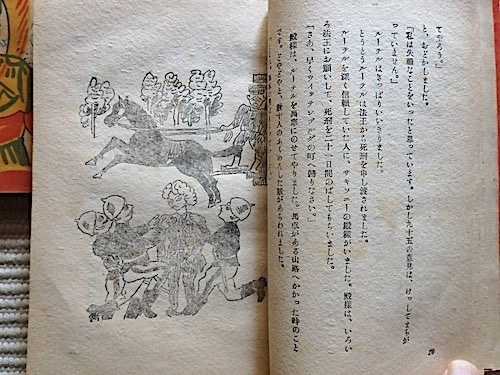 てやろう。」
と、おどかしました。
「私は失礼なことをいったと思っています。しかし九十五の意見は、けっしてまちが
っていません。」
ルーテルはきっぱりいいきりました。
とうとうルーテルは法王から死刑を申し渡されました。
ルーテルを深く信頼していた人に、サキソニーの殿様がいました。殿様は、いろい
ろ法王にお願いして、死刑を二十一日間のばしてもらいました。
「さあ、早くウィッテンブルグの町へ帰りなさい。」
殿様は、ルーテルを馬車にのせてやりました。馬車がある山路へかかった時のこと
です。どやどやと、数十人のふくめんをした賊があらわれました。